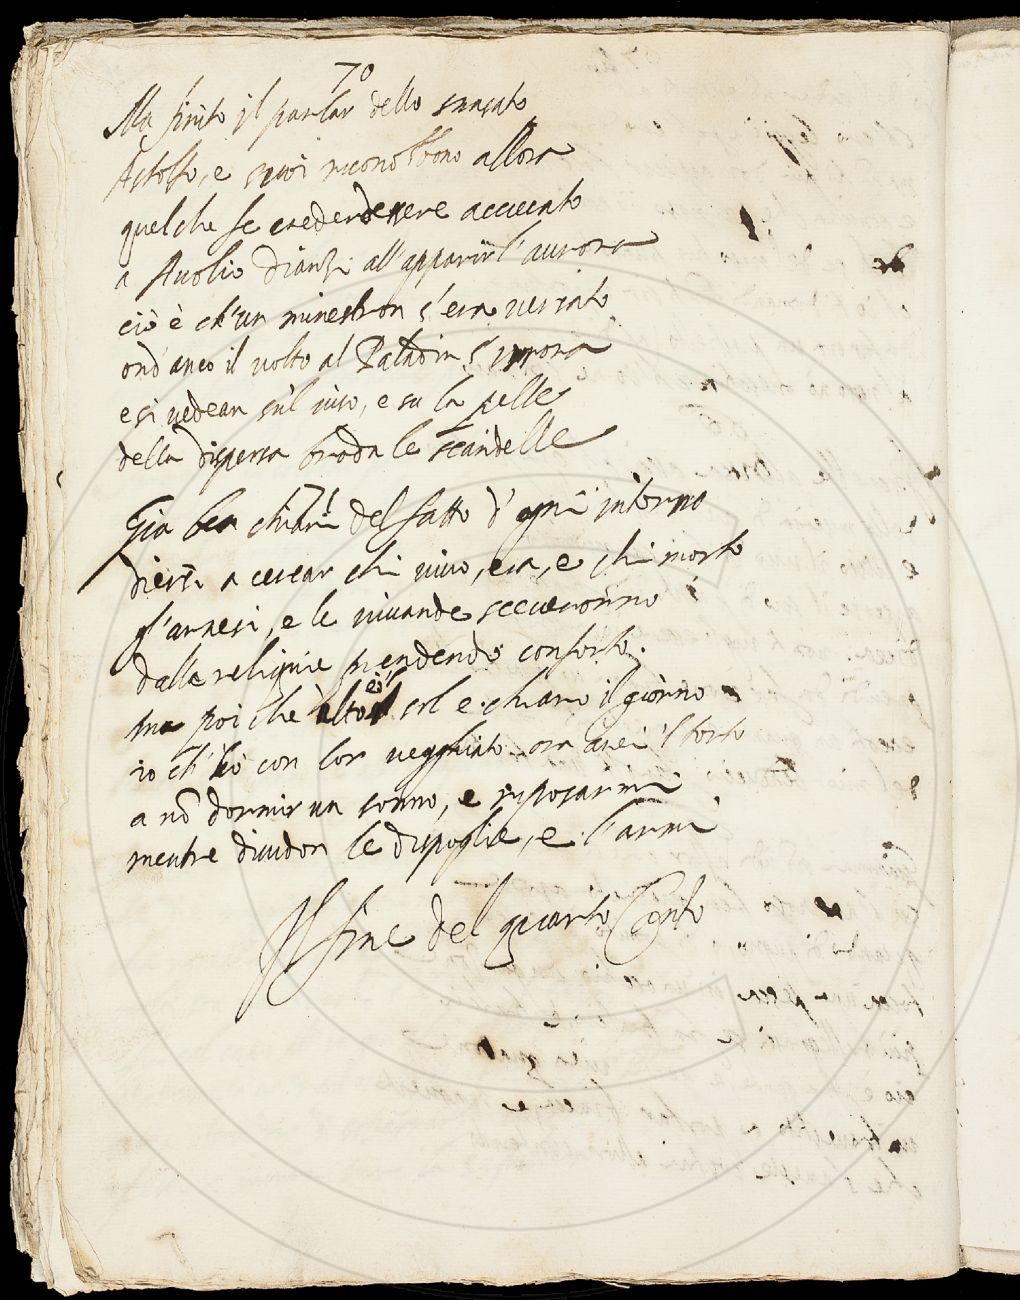 70
Ma finito il parlar dello snasato
Astolfo, e suoi riconobbono allora
quel che se creder dessere acciecato
a Avolio dianzi all'apparir l'aurora
ciò è ch'un minestron s'era versato
ond'anco il volto al Paladin s'
e si vedean sul viso, e su la pelle
della dispersa broda le scandelle
71
Gia ben chiari del fatto d'ogni intorno
diersi a cercar chi vivo, era, e chi morto
l'arnesi, e le vivande
dalle reliquie prendendo conforto.
ma poi che alto è il sol e chiaro il giorno
io ch'ho con lor vegghiato ora avei 'l torto
a nõ dormir un sonno, e riposarmi
mentre dividon le dispoglie, e l'armi
Il fine del quarto Canto